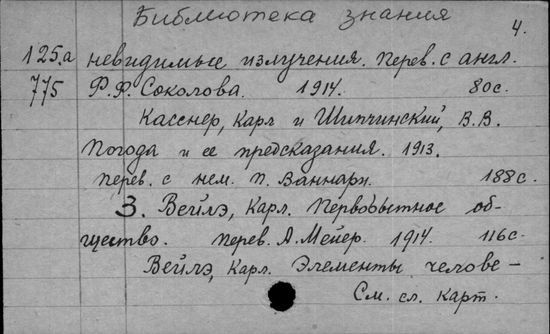 Библиотека знания
4.
125.а невидимые излучения. Перев. с англ.
775 Ф.Ф. Соколова. 1914. 80с.
Касснер, Карл и Шипчинский, В.В.
Погода и ее предсказания. 1913.
перев. с нем. П. Ваннари. 188с.
3. Вейлэ, Карл. Первобытное об-
щество. перев. А. Мейер. 1914. 116с.
Вейлэ, Карл. Элементы челове-
См. сл. карт.